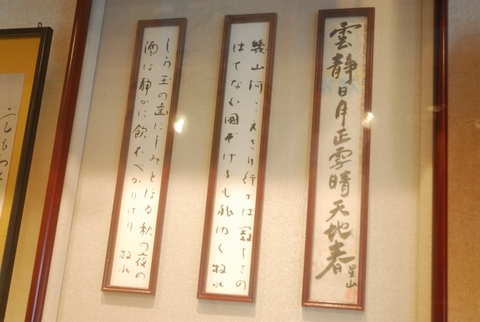 雲静日月正雪晴天地春
幾山河こえさり行かば寂しさの
はてなむ国ぞけふも旅ゆく 牧水
しら玉の歯にしみとほる秋の夜の
酒は静かに飲むべかりけり 牧水